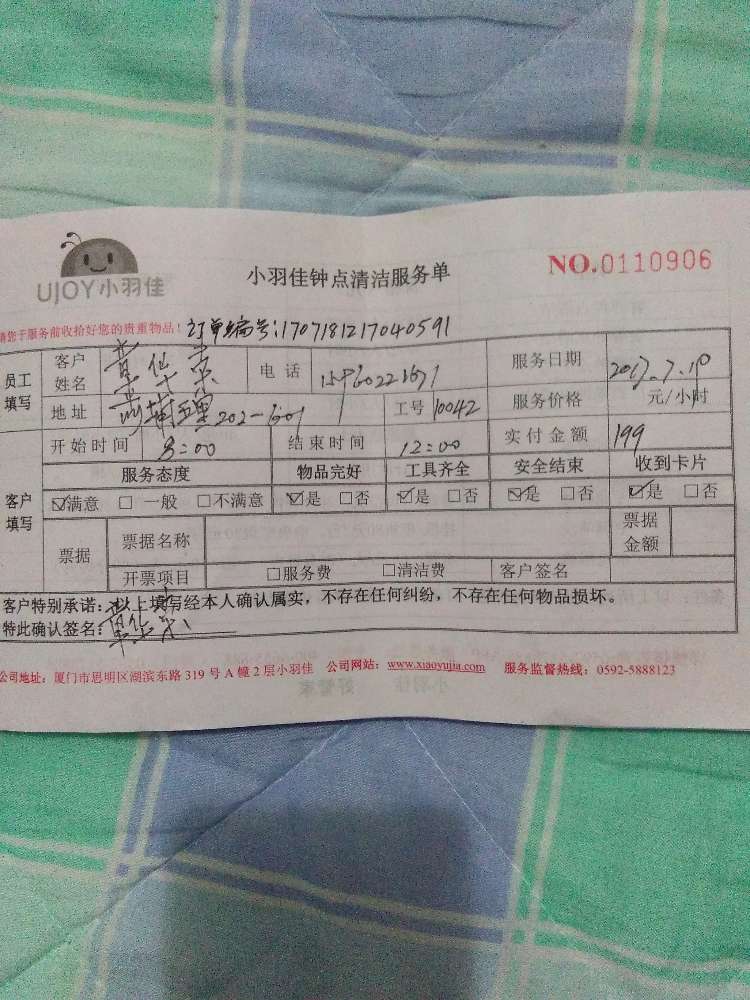 UJOY小羽佳
小羽佳钟点清洁服务单
NO.0110906
请您于服务前收拾好您的贵重物品！订单编号:1707181217040591
员工填写 客户姓名 电话 服务日期 2017.7.18
地址 202-1601 工号 10042 服务价格 元/小时
开始时间 8:00 结束时间 12:00 实付金额 199
客户填写 服务态度 物品完好 工具齐全 安全结束 收到卡片
☑满意 □一般 □不满意 ☑是 □否 ☑是 □否 ☑是 □否 ☑是 □否
票据 票据名称 票据金额
开票项目 □服务费 □清洁费 客户签名
客户特别承诺：以上填写经本人确认属实，不存在任何纠纷，不存在任何物品损坏。
特此确认签名：
公司地址：厦门市思明区湖滨东路 319 号 A 幢 2 层小羽佳 公司网站：www.xiaoyujia.com 服务监督热线：0592-5888123